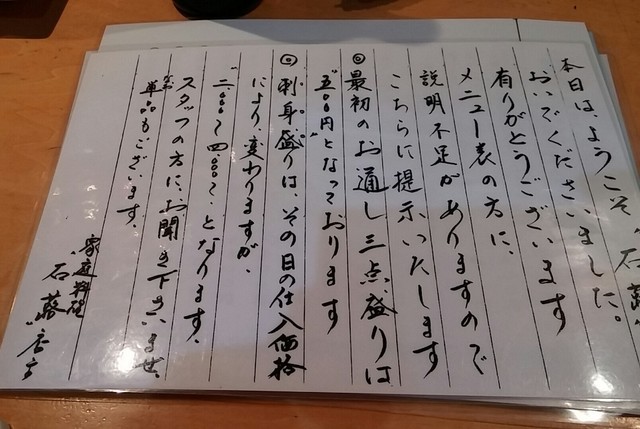 本日は、ようこそ“石蕗
おいでくださいました。
有りがとうございます
メニュー表の方に、
説明不足がありますので
こちらに提示いたします
◎最初のお通し三点盛りは
“五〇〇円”となっております
◎刺身盛りは、その日の仕入価格
により、変わりますが、
二、〇〇〇〜四、〇〇〇〜となります、
スタッフの方に、お聞き下さいませ、
なお単品もございます、
家庭料理
“石蕗”店主